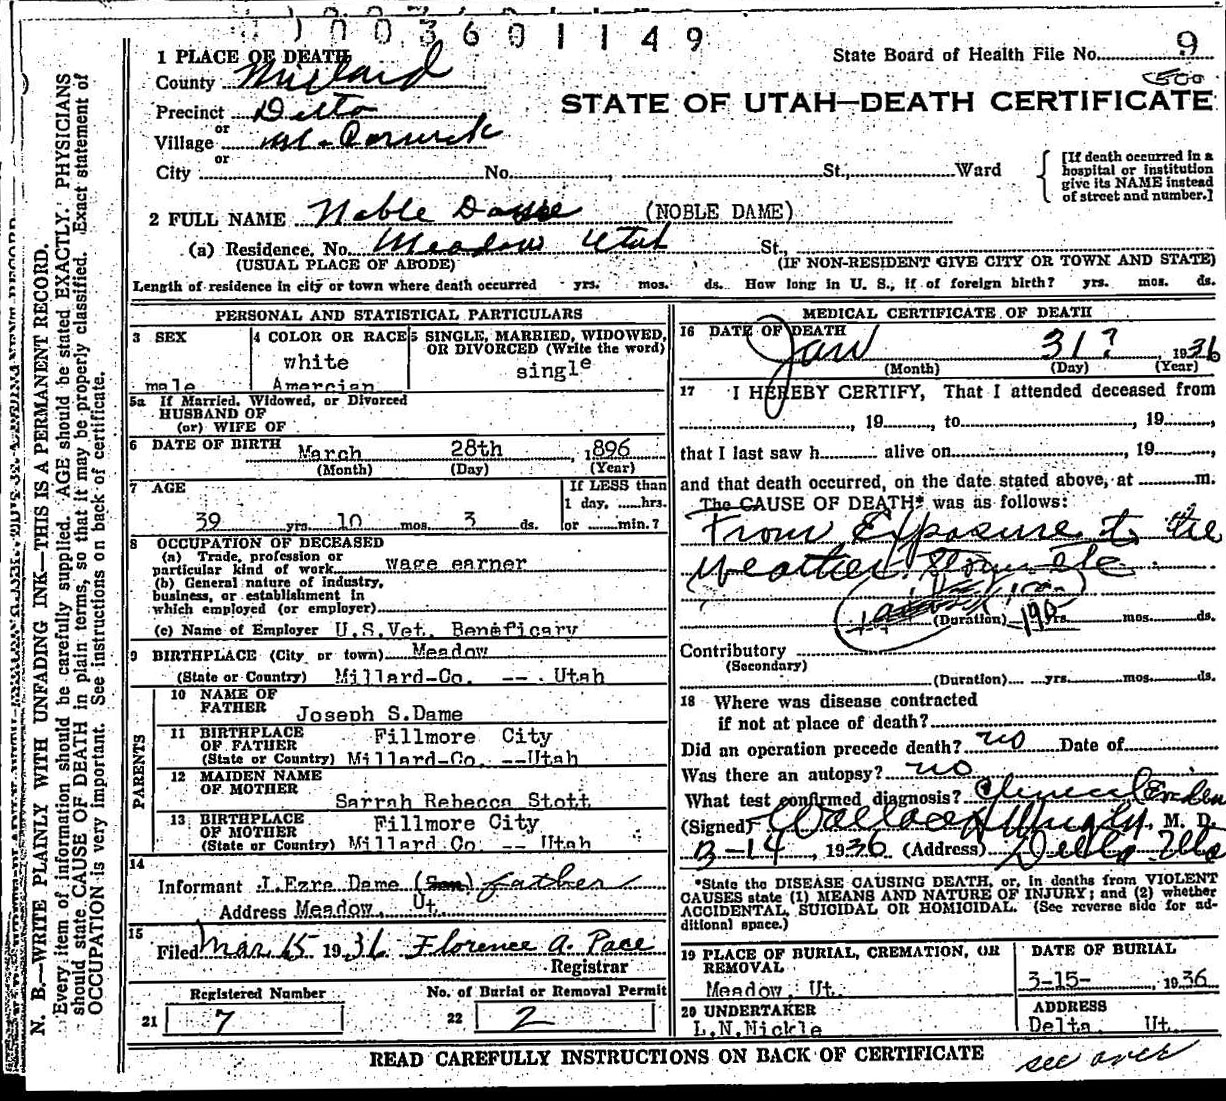 0 0 3 6 0 1 1 4 9
State Board of Health File No. 9
1 PLACE OF DEATH
County Millard
STATE OF UTAH—DEATH CERTIFICATE
Precinct Delta
or
Village
or
City No. , St., Ward
[If death occurred in a hospital or institution give its NAME instead of street and number.]
2 FULL NAME Noble Dame (NOBLE DAME)
(a) Residence, No. Meadow Utah St.,
(USUAL PLACE OF ABODE) (IF NON-RESIDENT GIVE CITY OR TOWN AND STATE)
Length of residence in city or town where death occurred yrs. mos. ds. How long in U. S., if of foreign birth? yrs. mos. ds.
PERSONAL AND STATISTICAL PARTICULARS
3 SEX
male
4 COLOR OR RACE
white
Amercian
5 SINGLE, MARRIED, WIDOWED, OR DIVORCED (Write the word)
single
5a If Married, Widowed, or Divorced
HUSBAND OF
(or) WIFE OF
6 DATE OF BIRTH March 28th , 1896
(Month) (Day) (Year)
7 AGE
39 yrs. 10 mos. 3 ds.
If LESS than
1 day, hrs.
or min.?
8 OCCUPATION OF DECEASED
(a) Trade, profession or
particular kind of work wage earner
(b) General nature of industry,
business, or establishment in
which employed (or employer)
(c) Name of Employer U.S.Vet. Beneficary
9 BIRTHPLACE (City or town) Meadow
(State or Country) Millard-Co. -- . Utah
PARENTS
10 NAME OF
FATHER Joseph S.Dame
11 BIRTHPLACE
OF FATHER Fillmore City
(State or Country) Millard-Co. --Utah
12 MAIDEN NAME
OF MOTHER
Sarrah Rebecca Stott
13 BIRTHPLACE
OF MOTHER Fillmore City
(State or Country) Millard Co. -- Utah
14
Informant J.Ezra Dame (Son) father
Address Meadow, Ut.
15
Filed Mar 15 1936 Florence A. Pace
Registrar
Registered Number No. of Burial or Removal Permit
21 7 22 2
MEDICAL CERTIFICATE OF DEATH
16 DATE OF DEATH
Jan 31? , 1936
(Month) (Day) (Year)
17 I HEREBY CERTIFY, That I attended deceased from
, 19 , to , 19 ,
that I last saw h alive on , 19 ,
and that death occurred, on the date stated above, at m.
The CAUSE OF DEATH* was as follows:
From Exposure to the
Weather.
(Duration) yrs. mos. ds.
Contributory
(Secondary)
(Duration) yrs. mos. ds.
18 Where was disease contracted
if not at place of death?
Did an operation precede death? no Date of
Was there an autopsy? no
What test confirmed diagnosis?
(Signed) Wallace , M. D.
3-14 , 1936 (Address) Delta Utah
*State the DISEASE CAUSING DEATH, or, in deaths from VIOLENT
CAUSES state (1) MEANS AND NATURE OF INJURY; and (2) whether
ACCIDENTAL, SUICIDAL OR HOMICIDAL. (See reverse side for ad-
ditional space.)
19 PLACE OF BURIAL, CREMATION, OR
REMOVAL
Meadow, Ut.
DATE OF BURIAL
3-15- , 1936
20 UNDERTAKER
L.N.Nickle
ADDRESS
Delta Ut.
READ CAREFULLY INSTRUCTIONS ON BACK OF CERTIFICATE
see over
N. B.—WRITE PLAINLY WITH UNFADING INK—THIS IS A PERMANENT RECORD.
Every item of information should be carefully supplied. AGE should be stated EXACTLY. PHYSICIANS
should state CAUSE OF DEATH in plain terms, so that it may be properly classified. Exact statement of
OCCUPATION is very important. See instructions on back of certificate.